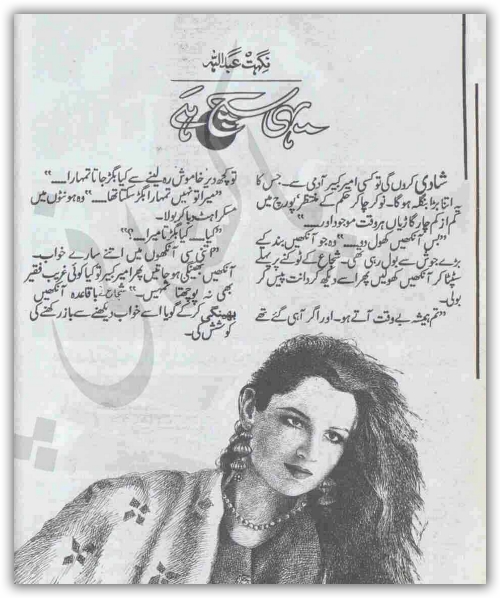 نگہت عبداللہ
یہی سچ ہے
شادی کروں گی تو کسی امیر کبیر آدمی سے۔ جس کا
اتنا بڑا بنگلہ ہوگا۔ نوکر چاکر حکم کے منتظر پورچ میں
کم از کم چار گاڑیاں ہر وقت موجود اور.....“
”بس آنکھیں کھول دو.....“ وہ جو آنکھیں بند کیے
بڑے جوش سے بول رہی تھی۔ شجاع کے ٹوکنے پر پہلے
سٹپٹا کر آنکھیں کھولیں پھر اسے دیکھ کر دانت پیس کر
بولی۔
”تم ہمیشہ بے وقت آتے ہو۔ اور اگر آ ہی گئے تھے
تو کچھ دیر خاموش رہ لینے سے کیا بگڑ جاتا تمہارا.....“
”میرا تو نہیں تمہارا بگڑ سکتا تھا.....“ وہ ہونٹوں میں
مسکراہٹ دبا کر بولا۔
”کیا..... کیا بگڑتا میرا.....؟“
”اتنی سی آنکھوں میں اتنے سارے خواب۔
آنکھیں بھینگی ہو جاتیں پھر امیر کبیر تو کیا کوئی غریب فقیر
بھی نہ پوچھتا تمہیں۔“ شجاع نے باقاعدہ آنکھیں
بھینگی کر کے گویا اسے خواب دیکھنے سے باز رکھنے کی
کوشش کی۔